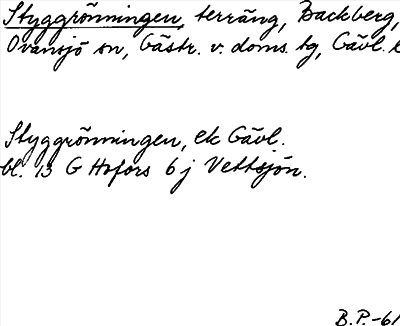 Styggrönningen, terräng, Backberg,
Ovansjö sn, Gästr. v. doms. tg, Gävl.
Styggrönningen, ek Gävl.
bl. 13 G Hofors 6 j Vettsjön.
B.P.-61